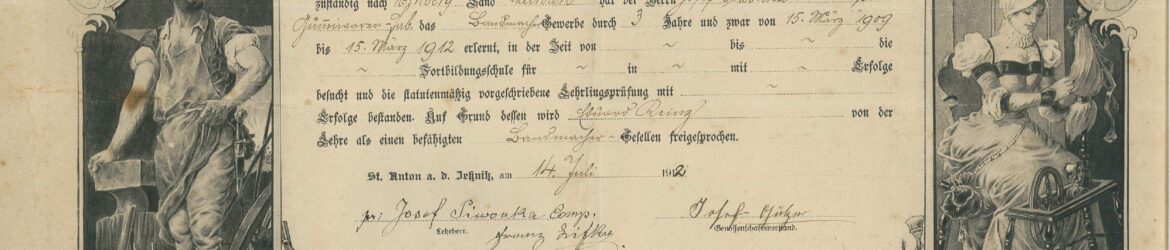 zuständig nach Land hat bei Herrn
Gummiwaren-Fab. das Bandmacher Gewerbe durch 3 Jahre und zwar von 15. März 1909
bis 15. März 1912 erlernt, in der Zeit von ~ bis ~ die
~ Fortbildungsschule für ~ in ~ mit ~ Erfolge
besucht und die statutenmäßig vorgeschriebene Lehrlingsprüfung mit ~
Erfolge bestanden. Auf Grund dessen wird Eduard von der
Lehre als einen befähigten Bandmacher-Gesellen freigesprochen.
St. Anton a. d. Jeßnitz, am 14. Juli 1912
pr: Josef Piwonka Comp. Josef
Lehrherr. Genossenschaftsvorstand.
Franz